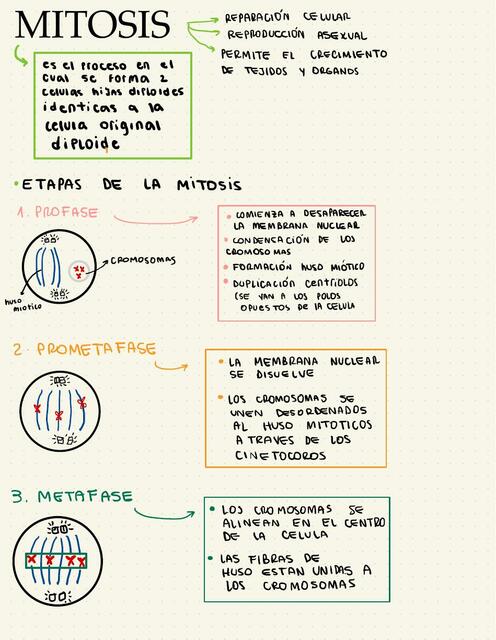 MITOSIS
REPARACIÓN CELULAR
REPRODUCCIÓN ASEXUAL
PERMITE EL CRECIMIENTO
DE TEJIDOS Y ORGANOS
es el proceso en el
cual se forma 2
celulas hijas diploides
identicas a la
celula original
diploide
• ETAPAS DE LA MITOSIS
1. PROFASE
• COMIENZA A DESAPARECER
LA MEMBRANA NUCLEAR
• CONDENSACIÓN DE LOS
CROMOSOMAS
• FORMACIÓN HUSO MIÓTICO
• DUPLICACIÓN CENTRIOLOS
(SE VAN A LOS POLOS
OPUESTOS DE LA CELULA
CROMOSOMAS
huso
miotico
2. PROMETAFASE
• LA MEMBRANA NUCLEAR
SE DISUELVE
• LOS CROMOSOMAS SE
UNEN DESORDENADOS
AL HUSO MITOTICOS
A TRAVES DE LOS
CINETOCOROS
3. METAFASE
• LOS CROMOSOMAS SE
ALINEAN EN EL CENTRO
DE LA CELULA
• LAS FIBRAS DE
HUSO ESTAN UNIDAS A
LOS CROMOSOMAS